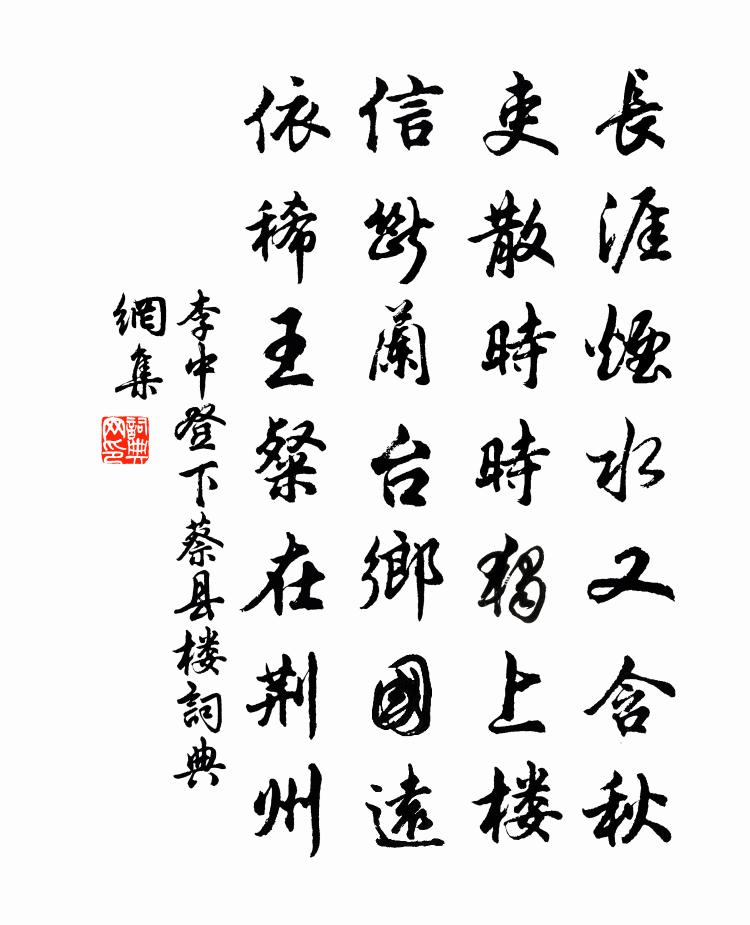 長涯煙水又含秋
吏散時時獨上楼
信斷蘭台鄉國遠
依稀王粲在荆州
李中登下蔡县楼詞典
網集
詞典
网印